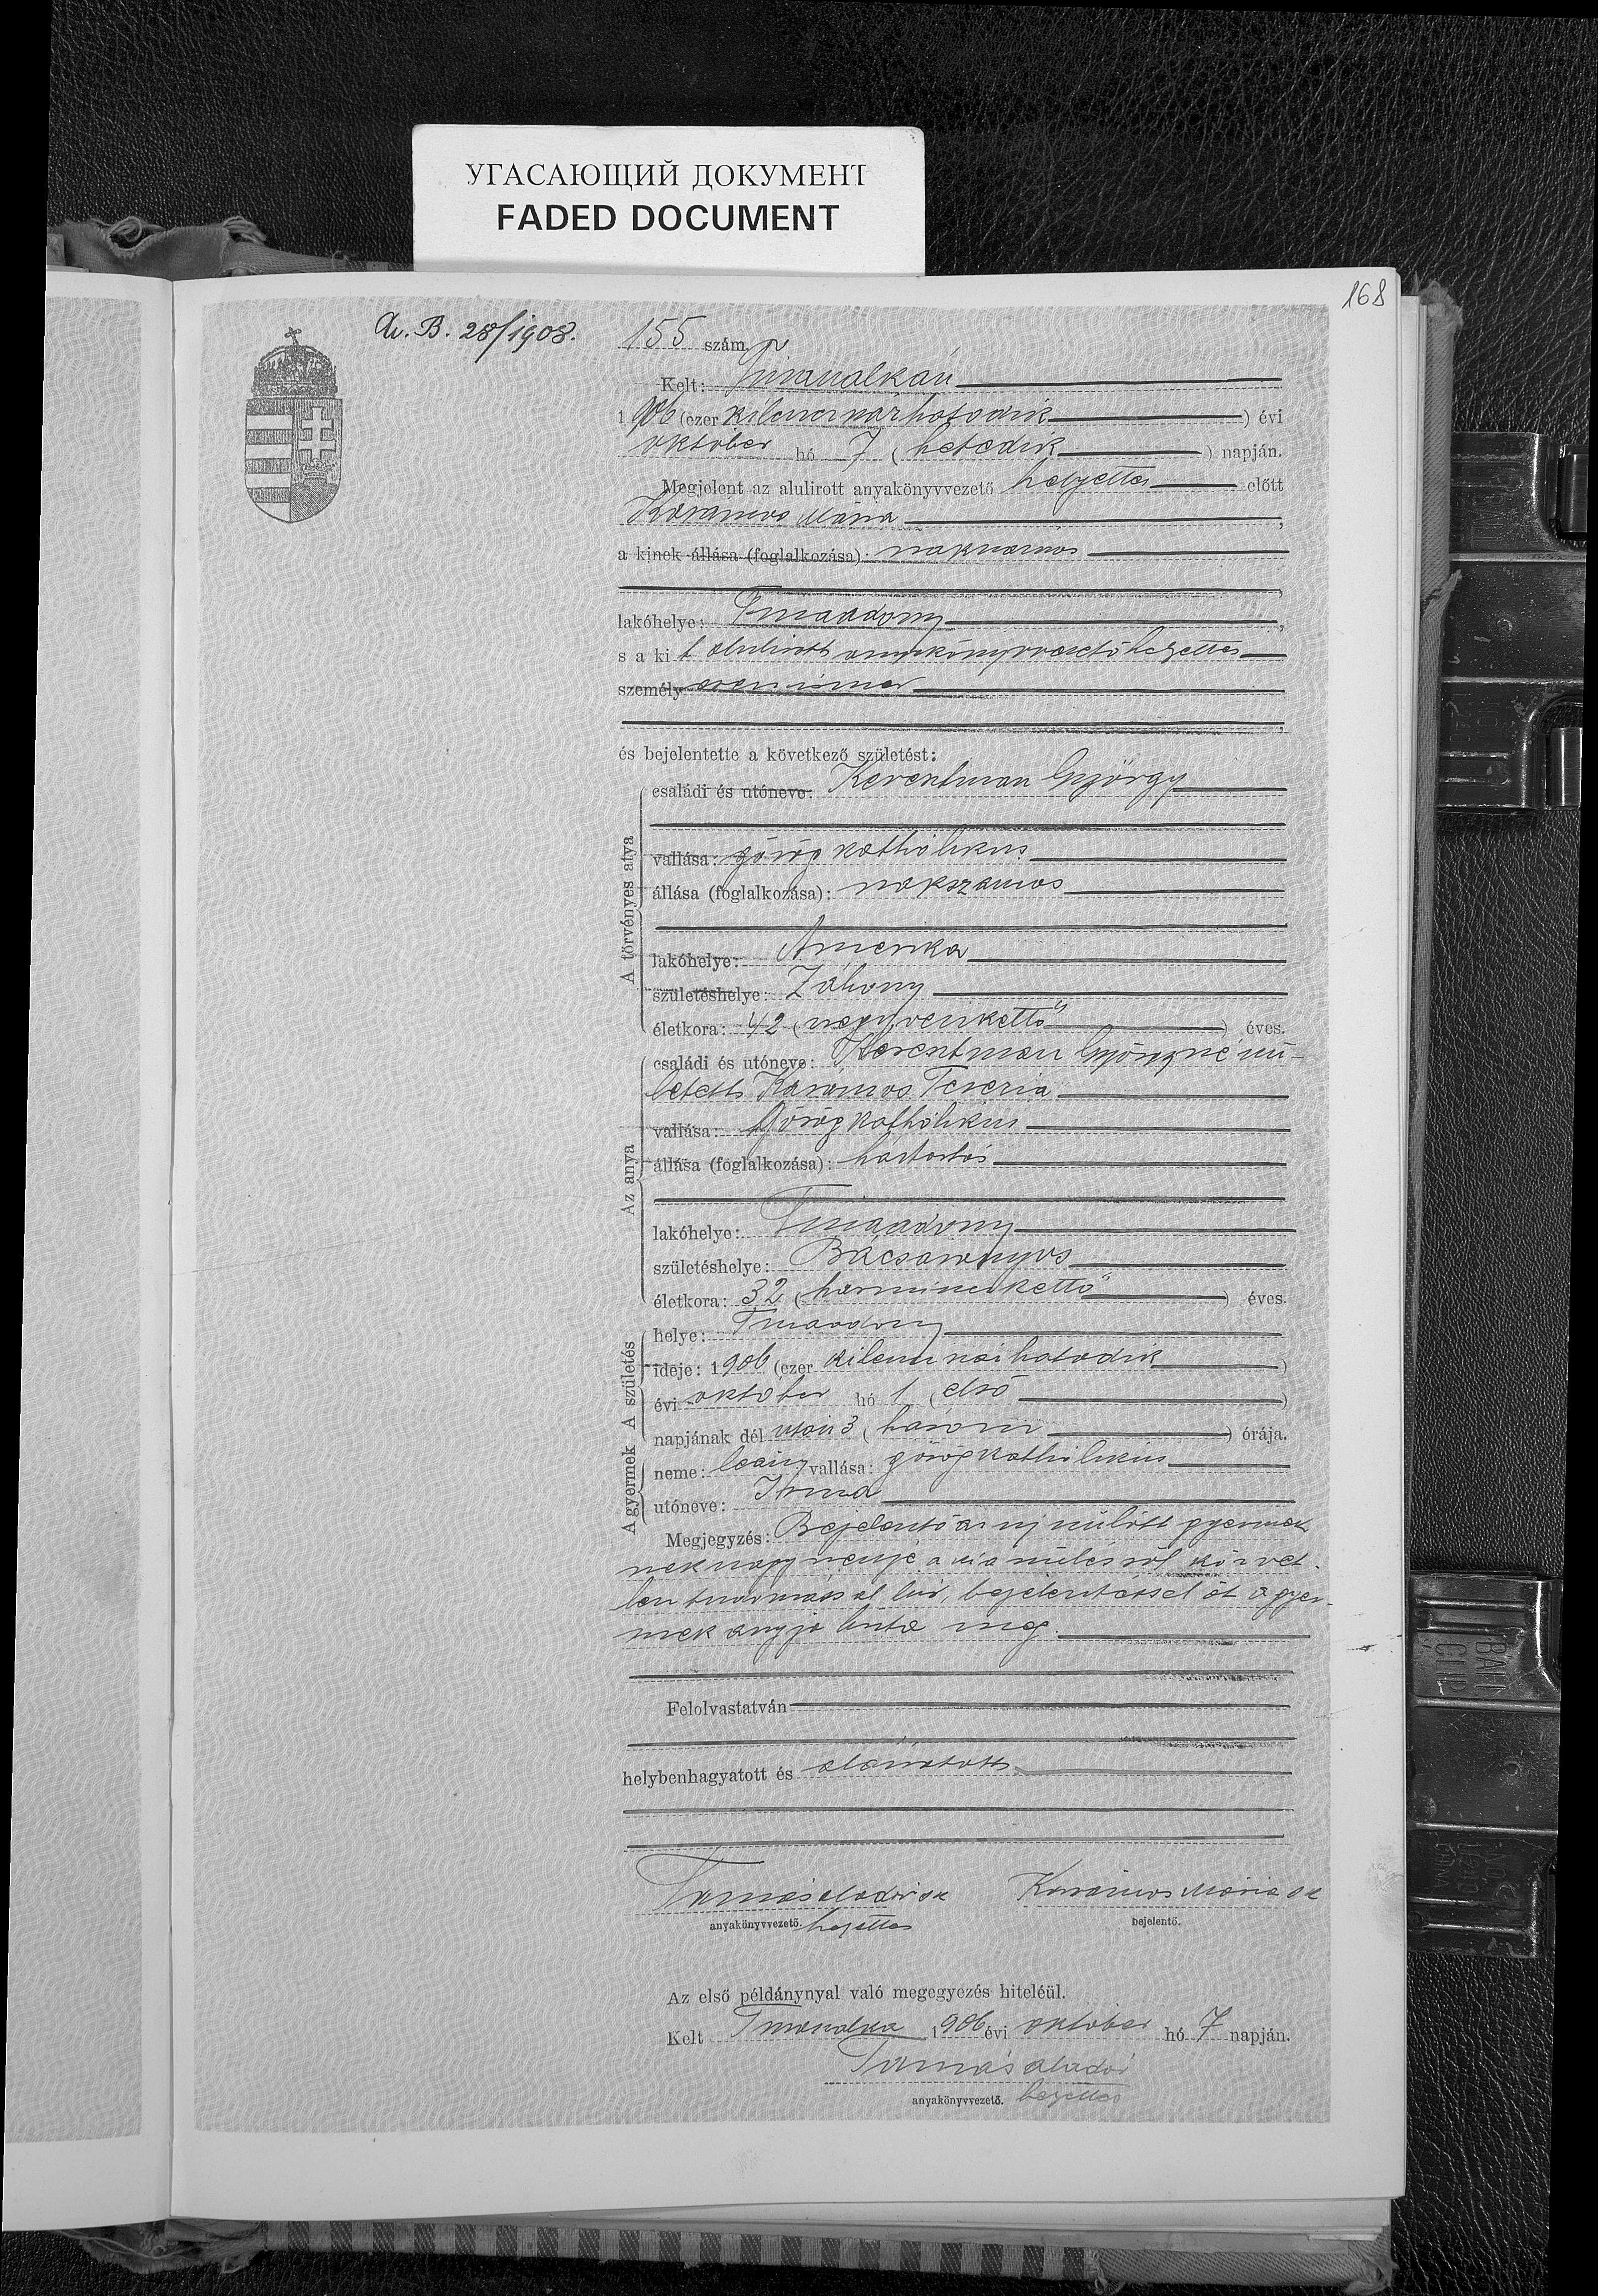 УГАСАЮЩИЙ ДОКУМЕНТ
FADED DOCUMENT
168
B. 28/1908.
155 szám
Kelt: Tiszasalkán
1906 (ezer kilencszázhatodik) évi
október hó 7 (hetedik) napján.
Megjelent az alulirott anyakönyvvezető helyettes előtt
Mária
a kinek állása (foglalkozása): napszámos
lakóhelye: Tiszaadony
s a kit alulirott anyakönyvvezető helyettes
személyesen ismer
és bejelentette a következő születést:
A törvényes atya
családi és utóneve: Kerestman György
vallása: görög katholikus
állása (foglalkozása): napszámos
lakóhelye: Amerika
születéshelye: Záhony
életkora: 42 (negyvenkettő) éves.
Az anya
családi és utóneve: Kerestman Györgyné szü-
letett Terézia
vallása: görög katholikus
állása (foglalkozása): háztartás
lakóhelye: Tiszaadony
születéshelye: Bácsaranyos
életkora: 32 (harminckettő) éves.
A gyermek A születés
helye: Tiszaadony
ideje: 1906 (ezer kilencszázhatodik)
évi október hó 1 (első)
napjának dél után 3 (három) órája.
neme: leány vallása: görög katholikus
utóneve: Irma
Megjegyzés: Bejelentő az uj szülött gyermek
nek nagynénje a születésről közvet-
len tudomással bir, bejelentéssel őt a gyer-
mek anyja bizta meg.
Felolvastatván
helybenhagyatott és aláiratott
Tamás Aladár sk
Mária sk
anyakönyvvezető. helyettes
bejelentő.
Az első példánynyal való megegyezés hiteléül.
Kelt Tiszasalka 1906 évi október hó 7 napján.
Tamás Aladár
anyakönyvvezető. helyettes